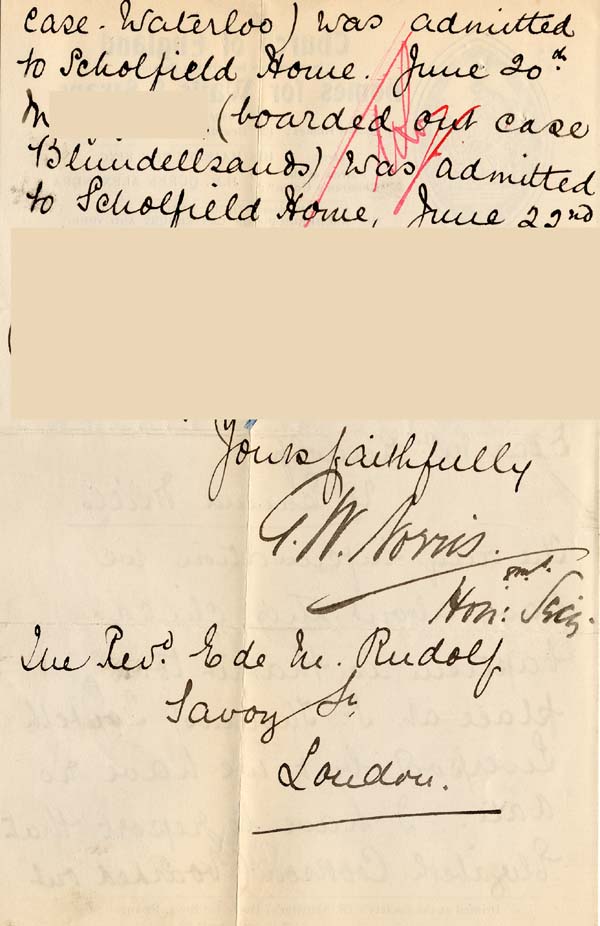 case. Waterloo) was admitted
to Scholfield Home. June 20th
M (boarded out case
Blundellsands) was admitted
to Scholfield Home, June 22nd
Yours faithfully
G. W. Norris.
Hon: Secy.
The Revd. E de M. Rudolf
Savoy St
London.